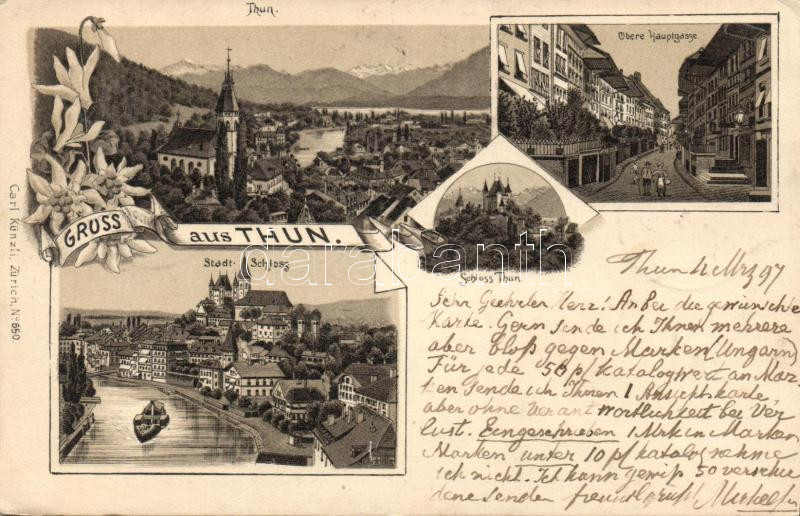 Thun.
Obere Hauptgasse
GRUSS
aus THUN.
Schloss Thun.
Stadt- Schloss
Carl Künzli, Zürich, No 650
darabanth
www.darabanth.com
Thun 12 Mrz 97
Sehr Geehrter Herr! Anbei die gewünschte
Karte. Gern sende ich Ihnen mehrere
aber bloß gegen Marken (Ungarn)
Für jede 50 pf katalogwert an Mar
ken sende ich Ihnen 1 Ansichtkarte,
aber ohne Verantwortlichkeit bei Ver
lust. Eingeschrieben 1 Mrk in Marken
Marken unter 10 pf katalog nehme
ich nicht. Ich kann gewiß 50 verschie
dene senden freundl gruß